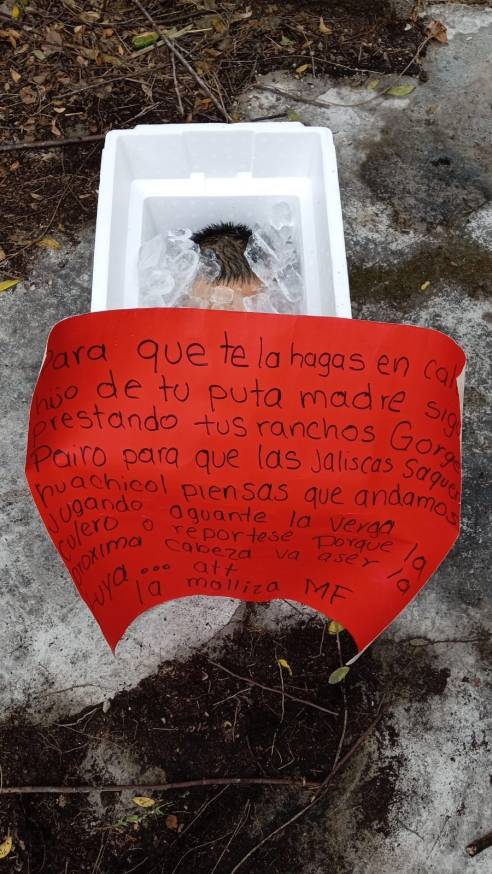 Para que te la hagas en cal
hijo de tu puta madre sig
prestando tus ranchos Gorge
Pairo para que las Jaliscas Saquen
huachicol piensas que andamos
Jugando aguante la verga
culero o reportese porque la
proxima cabeza va aser la
tuya... att
la malliza MF